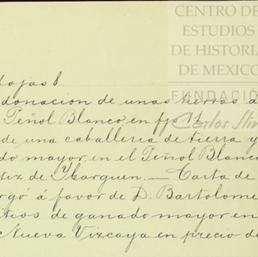 CENTRO DE
ESTUDIOS
DE HISTORIA
DE MEXICO
FUNDACIÓ
Carlos Sli
fojas 8
donacion de unas tierras
Peñol Blanco, en fjs 11
de una caballeria de tierra y
do mayor, en el Peñol Blanc
tiz de Ybarguen. - Carta de
rgó á favor de D. Bartolome
itios de ganado mayor en
Nueva Vizcaya en precio d